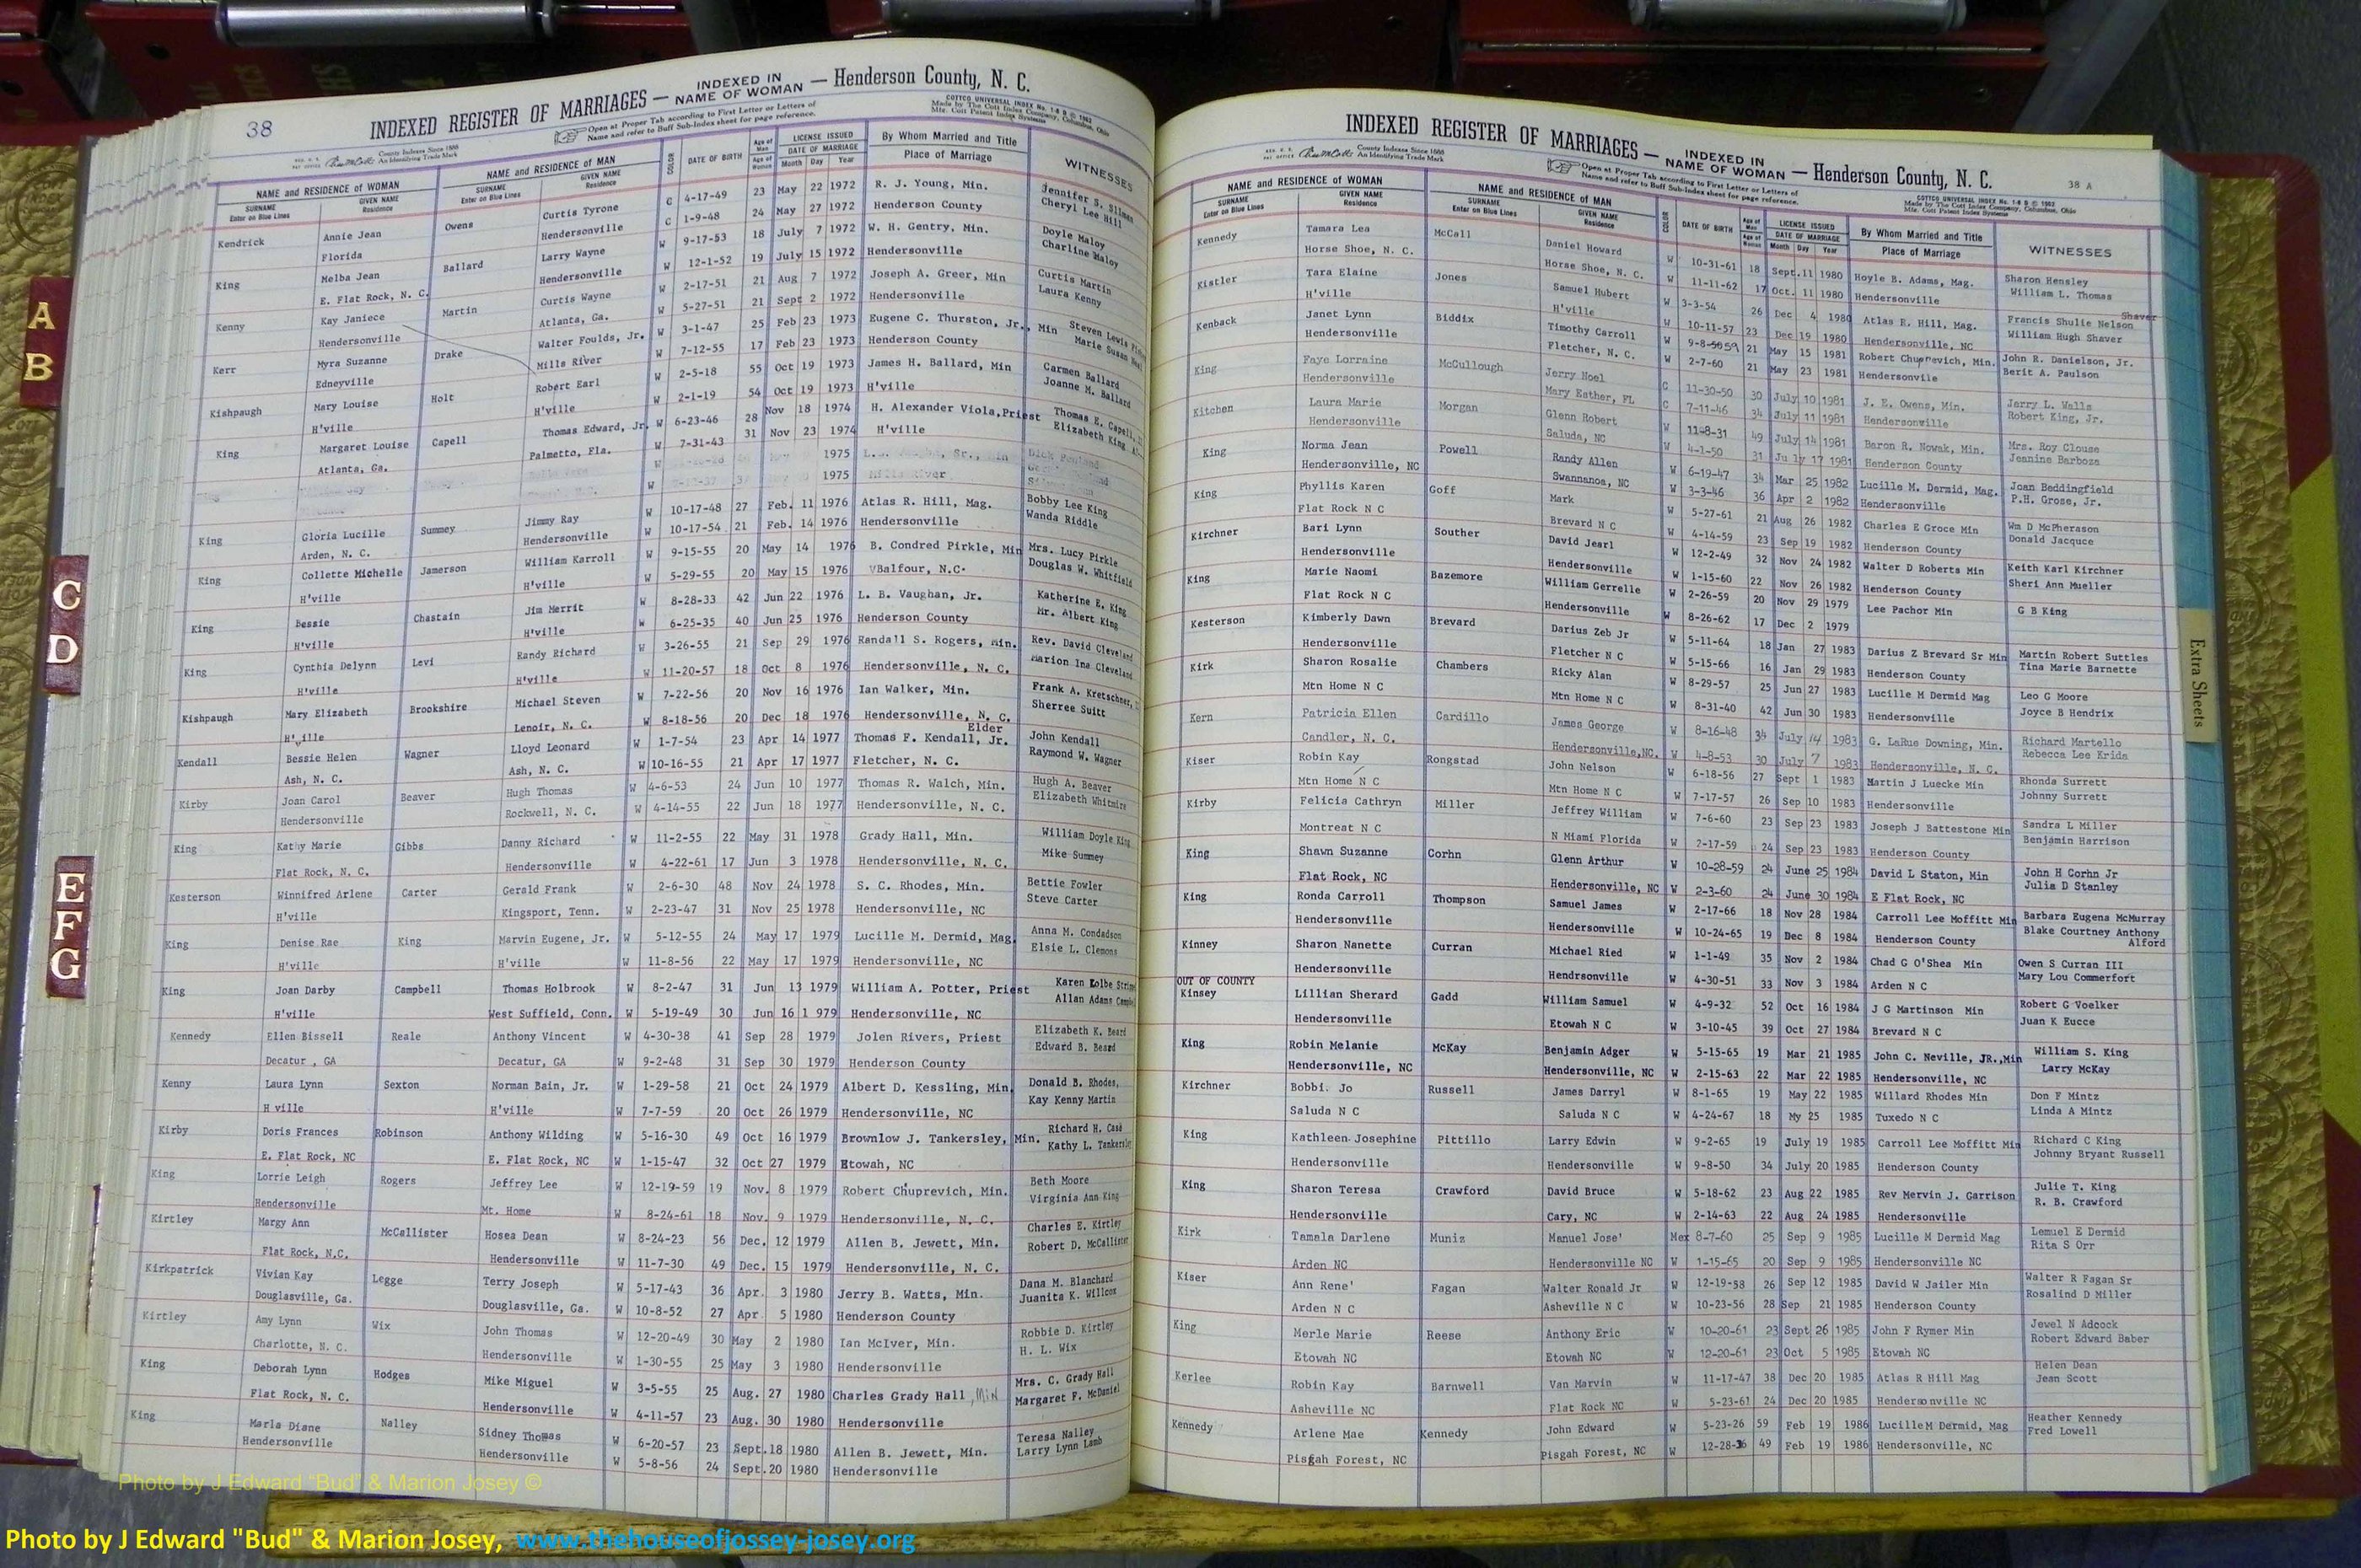 38
INDEXED REGISTER OF MARRIAGES — INDEXED IN NAME OF WOMAN — Henderson County, N. C.
County Indexes Since 1888
An Identifying Trade Mark
Open at Proper Tab according to First Letter or Letters of
Name and refer to Buff Sub-Index sheet for page reference.
COTTCO UNIVERSAL INDEX No. 1-8 B © 1963
Made by The Cott Index Company, Columbus, Ohio
Mfg. Cott Patent Index Systems
NAME and RESIDENCE OF WOMAN NAME and RESIDENCE OF MAN COLOR DATE OF BIRTH Age of Man LICENSE ISSUED By Whom Married and Title WITNESSES
SURNAME GIVEN NAME SURNAME GIVEN NAME Age of Woman DATE OF MARRIAGE Place of Marriage
Enter on Blue Lines Residence Enter on Blue Lines Residence Month Day Year
Kendrick Annie Jean Owens Curtis Tyrone C 4-17-49 23 May 22 1972 R. J. Young, Min. Jennifer S. Sliman
Florida Hendersonville C 1-9-48 24 May 27 1972 Henderson County Cheryl Lee Hill
King Melba Jean Ballard Larry Wayne W 9-17-53 18 July 7 1972 W. H. Gentry, Min. Doyle Maloy
E. Flat Rock, N. C. Hendersonville W 12-1-52 19 July 15 1972 Hendersonville Charline Maloy
Kenny Kay Janiece Martin Curtis Wayne W 2-17-51 21 Aug 7 1972 Joseph A. Greer, Min Curtis Martin
Hendersonville Atlanta, Ga. W 5-27-51 21 Sept 2 1972 Hendersonville Laura Kenny
Kerr Myra Suzanne Drake Walter Foulds, Jr. W 3-1-47 25 Feb 23 1973 Eugene C. Thurston, Jr., Min Steven Lewis
Edneyville Mills River W 7-12-55 17 Feb 23 1973 Henderson County Marie Susan
Kishpaugh Mary Louise Holt Robert Earl W 2-5-18 55 Oct 19 1973 James H. Ballard, Min Carmen Ballard
H'ville H'ville W 2-1-19 54 Oct 19 1973 H'ville Joanne M. Ballard
King Margaret Louise Capell Thomas Edward, Jr. W 6-23-46 28 Nov 18 1974 H. Alexander Viola, Priest Thomas E. Capell,
Atlanta, Ga. Palmetto, Fla. W 7-31-43 31 Nov 23 1974 H'ville Elizabeth King
W 1975
W 1975 Mills River
King Gloria Lucille Summey Jimmy Ray W 10-17-48 27 Feb. 11 1976 Atlas R. Hill, Mag. Bobby Lee King
Arden, N. C. Hendersonville W 10-17-54 21 Feb. 14 1976 Hendersonville Wanda Riddle
King Collette Michelle Jamerson William Karroll W 9-15-55 20 May 14 1976 B. Condred Pirkle, Min Mrs. Lucy Pirkle
H'ville H'ville W 5-29-55 20 May 15 1976 VBalfour, N.C. Douglas W. Whitfield
King Bessie Chastain Jim Merrit W 8-28-33 42 Jun 22 1976 L. B. Vaughan, Jr. Katherine E. King
H'ville H'ville W 6-25-35 40 Jun 25 1976 Henderson County Mr. Albert King
King Cynthia Delynn Levi Randy Richard W 3-26-55 21 Sep 29 1976 Randall S. Rogers, Min. Rev. David Cleveland
H'ville H'ville W 11-20-57 18 Oct 8 1976 Hendersonville, N. C. Marion Ina Cleveland
Kishpaugh Mary Elizabeth Brookshire Michael Steven W 7-22-56 20 Nov 16 1976 Ian Walker, Min. Frank A. Kretschner,
H'ville Lenoir, N. C. W 8-18-56 20 Dec 18 1976 Hendersonville, N. C. Sherree Suitt
Kendall Bessie Helen Wagner Lloyd Leonard W 1-7-54 23 Apr 14 1977 Thomas F. Kendall, Jr. Elder John Kendall
Ash, N. C. Ash, N. C. W 10-16-55 21 Apr 17 1977 Fletcher, N. C. Raymond W. Wagner
Kirby Joan Carol Beaver Hugh Thomas W 4-6-53 24 Jun 10 1977 Thomas R. Walch, Min. Hugh A. Beaver
Hendersonville Rockwell, N. C. W 4-14-55 22 Jun 18 1977 Hendersonville, N. C. Elizabeth Whitmire
King Kathy Marie Gibbs Danny Richard W 11-2-55 22 May 31 1978 Grady Hall, Min. William Doyle King
Flat Rock, N. C. Hendersonville W 4-22-61 17 Jun 3 1978 Hendersonville, N. C. Mike Summey
Kesterson Winnifred Arlene Carter Gerald Frank W 2-6-30 48 Nov 24 1978 S. C. Rhodes, Min. Bettie Fowler
H'ville Kingsport, Tenn. W 2-23-47 31 Nov 25 1978 Hendersonville, NC Steve Carter
King Denise Rae King Marvin Eugene, Jr. W 5-12-55 24 May 17 1979 Lucille M. Dermid, Mag. Anna M. Condadson
H'ville H'ville W 11-8-56 22 May 17 1979 Hendersonville, NC Elsie L. Clemons
King Joan Darby Campbell Thomas Holbrook W 8-2-47 31 Jun 13 1979 William A. Potter, Priest Karen Kolbe
H'ville West Suffield, Conn. W 5-19-49 30 Jun 16 1 979 Hendersonville, NC Allan Adams Campbell
Kennedy Ellen Bissell Reale Anthony Vincent W 4-30-38 41 Sep 28 1979 Jolen Rivers, Priest Elizabeth K. Beard
Decatur , GA Decatur, GA W 9-2-48 31 Sep 30 1979 Henderson County Edward B. Beard
Kenny Laura Lynn Sexton Norman Bain, Jr. W 1-29-58 21 Oct 24 1979 Albert D. Kessling, Min. Donald B. Rhodes,
H ville H'ville W 7-7-59 20 Oct 26 1979 Hendersonville, NC Kay Kenny Martin
Kirby Doris Frances Robinson Anthony Wilding W 5-16-30 49 Oct 16 1979 Brownlow J. Tankersley, Min. Richard H. Case
E. Flat Rock, NC E. Flat Rock, NC W 1-15-47 32 Oct 27 1979 Etowah, NC Kathy L. Tankersley
King Lorrie Leigh Rogers Jeffrey Lee W 12-19-59 19 Nov. 8 1979 Robert Chuprevich, Min. Beth Moore
Hendersonville Mt. Home W 8-24-61 18 Nov. 9 1979 Hendersonville, N. C. Virginia Ann King
Kirtley Margy Ann McCallister Hosea Dean W 8-24-23 56 Dec. 12 1979 Allen B. Jewett, Min. Charles E. Kirtley
Flat Rock, N.C. Hendersonville W 11-7-30 49 Dec. 15 1979 Hendersonville, N. C. Robert D. McCallister
Kirkpatrick Vivian Kay Legge Terry Joseph W 5-17-43 36 Apr. 3 1980 Jerry B. Watts, Min. Dana M. Blanchard
Douglasville, Ga. Douglasville, Ga. W 10-8-52 27 Apr 5 1980 Henderson County Juanita K. Willcox
Kirtley Amy Lynn Wix John Thomas W 12-20-49 30 May 2 1980 Ian McIver, Min. Robbie D. Kirtley
Charlotte, N. C. Hendersonville W 1-30-55 25 May 3 1980 Hendersonville H. L. Wix
King Deborah Lynn Hodges Mike Miguel W 3-5-55 25 Aug. 27 1980 Charles Grady Hall, Min Mrs. C. Grady Hall
Flat Rock, N. C. Hendersonville W 4-11-57 23 Aug. 30 1980 Hendersonville Margaret F. McDaniel
King Marla Diane Nalley Sidney Thomas W 6-20-57 23 Sept. 18 1980 Allen B. Jewett, Min. Teresa Nalley
Hendersonville Hendersonville W 5-8-56 24 Sept. 20 1980 Hendersonville Larry Lynn Lamb
INDEXED REGISTER OF MARRIAGES — INDEXED IN NAME OF WOMAN — Henderson County, N. C.
38 A
County Indexes Since 1888
An Identifying Trade Mark
Open at Proper Tab according to First Letter or Letters of
Name and refer to Buff Sub-Index sheet for page reference.
COTTCO UNIVERSAL INDEX No. 1-8 B © 1963
Made by The Cott Index Company, Columbus, Ohio
Mfg. Cott Patent Index Systems
NAME and RESIDENCE OF WOMAN NAME and RESIDENCE OF MAN COLOR DATE OF BIRTH Age of Man LICENSE ISSUED By Whom Married and Title WITNESSES
SURNAME GIVEN NAME SURNAME GIVEN NAME Age of Woman DATE OF MARRIAGE Place of Marriage
Enter on Blue Lines Residence Enter on Blue Lines Residence Month Day Year
Kennedy Tamara Lea McCall Daniel Howard W 10-31-61 18 Sept. 11 1980 Hoyle B. Adams, Mag. Sharon Hensley
Horse Shoe, N. C. Horse Shoe, N. C. W 11-11-62 17 Oct. 11 1980 Hendersonville William L. Thomas
Kistler Tara Elaine Jones Samuel Hubert W 3-3-54 26 Dec 4 1980 Atlas R. Hill, Mag. Francis Shulie Nelson Shaver
H'ville H'ville W 10-11-57 23 Dec 19 1980 Hendersonville, NC William Hugh Shaver
Kenback Janet Lynn Biddix Timothy Carroll W 9-8-5059 21 May 15 1981 Robert Chuprevich, Min. John R. Danielson, Jr.
Hendersonville Fletcher, N. C. W 2-7-60 21 May 23 1981 Hendersonvile Berit A. Paulson
King Faye Lorraine McCullough Jerry Noel C 11-30-50 30 July 10 1981 J. E. Owens, Min. Jerry L. Walls
Hendersonville Mary Esther, FL C 7-11-46 34 July 11 1981 Hendersonville Robert King, Jr.
Kitchen Laura Marie Morgan Glenn Robert W 11-8-31 49 July 14 1981 Baron R. Nowak, Min. Mrs. Roy Clouse
Hendersonville Saluda, NC W 4-1-50 31 July 17 1981 Henderson County Jeanine Barboza
King Norma Jean Powell Randy Allen W 6-19-47 34 Mar 25 1982 Lucille M. Dermid, Mag. Joan Beddingfield
Hendersonville, NC Swannanoa, NC W 3-3-46 36 Apr 2 1982 Hendersonville P.H. Grose, Jr.
King Phyllis Karen Goff Mark W 5-27-61 21 Aug 26 1982 Charles E Groce Min Wm D McPherason
Flat Rock N C Brevard N C W 4-14-59 23 Sep 19 1982 Henderson County Donald Jacquce
Kirchner Bari Lynn Souther David Jearl W 12-2-49 32 Nov 24 1982 Walter D Roberts Min Keith Karl Kirchner
Hendersonville Hendersonville W 1-15-60 22 Nov 26 1982 Henderson County Sheri Ann Mueller
King Marie Naomi Bazemore William Gerrelle W 2-26-59 20 Nov 29 1979 Lee Pachor Min G B King
Flat Rock N C Hendersonville W 8-26-62 17 Dec 2 1979
Kesterson Kimberly Dawn Brevard Darius Zeb Jr W 5-11-64 18 Jan 27 1983 Darius Z Brevard Sr Min Martin Robert Suttles
Hendersonville Fletcher N C W 5-15-66 16 Jan 29 1983 Henderson County Tina Marie Barnette
Kirk Sharon Rosalie Chambers Ricky Alan W 8-29-57 25 Jun 27 1983 Lucille M Dermid Mag Leo G Moore
Mtn Home N C Mtn Home N C W 8-31-40 42 Jun 30 1983 Hendersonville Joyce B Hendrix
Kern Patricia Ellen Cardillo James George W 8-16-48 34 July 14 1983 G. LaRue Downing, Min. Richard Martello
Candler, N. C. Hendersonville, NC. W 4-8-53 30 July 7 1983 Hendersonville, N. C. Rebecca Lee Krida
Kiser Robin Kay Rongstad John Nelson W 6-18-56 27 Sept 1 1983 Martin J Luecke Min Rhonda Surrett
Mtn Home N C Mtn Home N C W 7-17-57 26 Sep 10 1983 Hendersonville Johnny Surrett
Kirby Felicia Cathryn Miller Jeffrey William W 7-6-60 23 Sep 23 1983 Joseph J Battestone Min Sandra L Miller
Montreat N C N Miami Florida W 2-17-59 24 Sep 23 1983 Henderson County Benjamin Harrison
King Shawn Suzanne Corhn Glenn Arthur W 10-28-59 24 June 25 1984 David L Staton, Min John H Corhn Jr
Flat Rock, NC Hendersonville, NC W 2-3-60 24 June 30 1984 E Flat Rock, NC Julia D Stanley
King Ronda Carroll Thompson Samuel James W 2-17-66 18 Nov 28 1984 Carroll Lee Moffitt Min Barbara Eugena McMurray
Hendersonville Hendersonville W 10-24-65 19 Dec 8 1984 Henderson County Blake Courtney Anthony Alford
Kinney Sharon Nanette Curran Michael Ried W 1-1-49 35 Nov 2 1984 Chad G O'Shea Min Owen S Curran III
Hendersonville Hendrsonville W 4-30-51 33 Nov 3 1984 Arden N C Mary Lou Commerfort
OUT OF COUNTY
Kinsey Lillian Sherard Gadd William Samuel W 4-9-32 52 Oct 16 1984 J G Martinson Min Robert G Voelker
Hendersonville Etowah N C W 3-10-45 39 Oct 27 1984 Brevard N C Juan K Eucce
King Robin Melanie McKay Benjamin Adger W 5-15-65 19 Mar 21 1985 John C. Neville, JR., Min William S. King
Hendersonville, NC Hendersonville, NC W 2-15-63 22 Mar 22 1985 Hendersonville, NC Larry McKay
Kirchner Bobbi Jo Russell James Darryl W 8-1-65 19 May 22 1985 Willard Rhodes Min Don F Mintz
Saluda N C Saluda N C W 4-24-67 18 My 25 1985 Tuxedo N C Linda A Mintz
King Kathleen Josephine Pittillo Larry Edwin W 9-2-65 19 July 19 1985 Carroll Lee Moffitt Min Richard C King
Hendersonville Hendersonville W 9-8-50 34 July 20 1985 Henderson County Johnny Bryant Russell
King Sharon Teresa Crawford David Bruce W 5-18-62 23 Aug 22 1985 Rev Mervin J. Garrison Julie T. King
Hendersonville Cary, NC W 2-14-63 22 Aug 24 1985 Hendersonville R. B. Crawford
Kirk Tamala Darlene Muniz Manuel Jose' Mex 8-7-60 25 Sep 9 1985 Lucille M Dermid Mag Lemuel E Dermid
Arden NC Hendersonville NC W 1-15-65 20 Sep 9 1985 Hendersonville NC Rita S Orr
Kiser Ann Rene' Fagan Walter Ronald Jr W 12-19-58 26 Sep 12 1985 David W Jailer Min Walter R Fagan Sr
Arden N C Asheville N C W 10-23-56 28 Sep 21 1985 Henderson County Rosalind D Miller
King Merle Marie Reese Anthony Eric W 10-20-61 23 Sept 26 1985 John F Rymer Min Jewel N Adcock
Etowah NC Etowah NC W 12-20-61 23 Oct 5 1985 Etowah NC Robert Edward Baber
Kerlee Robin Kay Barnwell Van Marvin W 11-17-47 38 Dec 20 1985 Atlas R Hill Mag Helen Dean
Asheville NC Flat Rock NC W 5-23-61 24 Dec 20 1985 Hendersonville NC Jean Scott
Kennedy Arlene Mae Kennedy John Edward W 5-23-26 59 Feb 19 1986 Lucille M Dermid, Mag Heather Kennedy
Pisgah Forest, NC Pisgah Forest, NC W 12-28-36 49 Feb 19 1986 Hendersonville, NC Fred Lowell
A
B
C
D
E
F
G
Extra Sheets
Photo by J Edward "Bud" & Marion Josey ©
Photo by J Edward "Bud" & Marion Josey, www.thehouseofjossey-josey.org